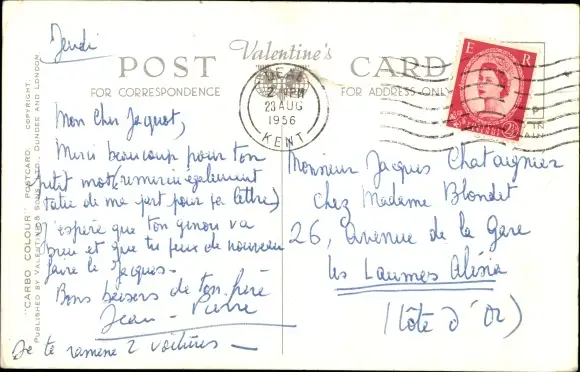 Jeudi
Valentine's
POST CARD
FOR CORRESPONDENCE
FOR ADDRESS ONLY
DEAL
2 - PM
23 AUG
1956
KENT
E R
2½
Mon Cher Jacquot,
Merci beaucoup pour ton
petit mot (remercie également
tatie de ma part pour sa lettre)
J'espère que ton genou va
bien et que tu peux de nouveau
faire le Jacques -
Bons baisers de ton frère
Jean-Pierre
Je te ramène 2 voitures -
Monsieur Jacques Chataignier
chez Madame Blondet
26, avenue de la Gare
les Laumes Alésia
(Côte d'Or)
"CARBO COLOUR" POSTCARD. COPYRIGHT.
PUBLISHED BY VALENTINE & SONS, LTD., DUNDEE AND LONDON.